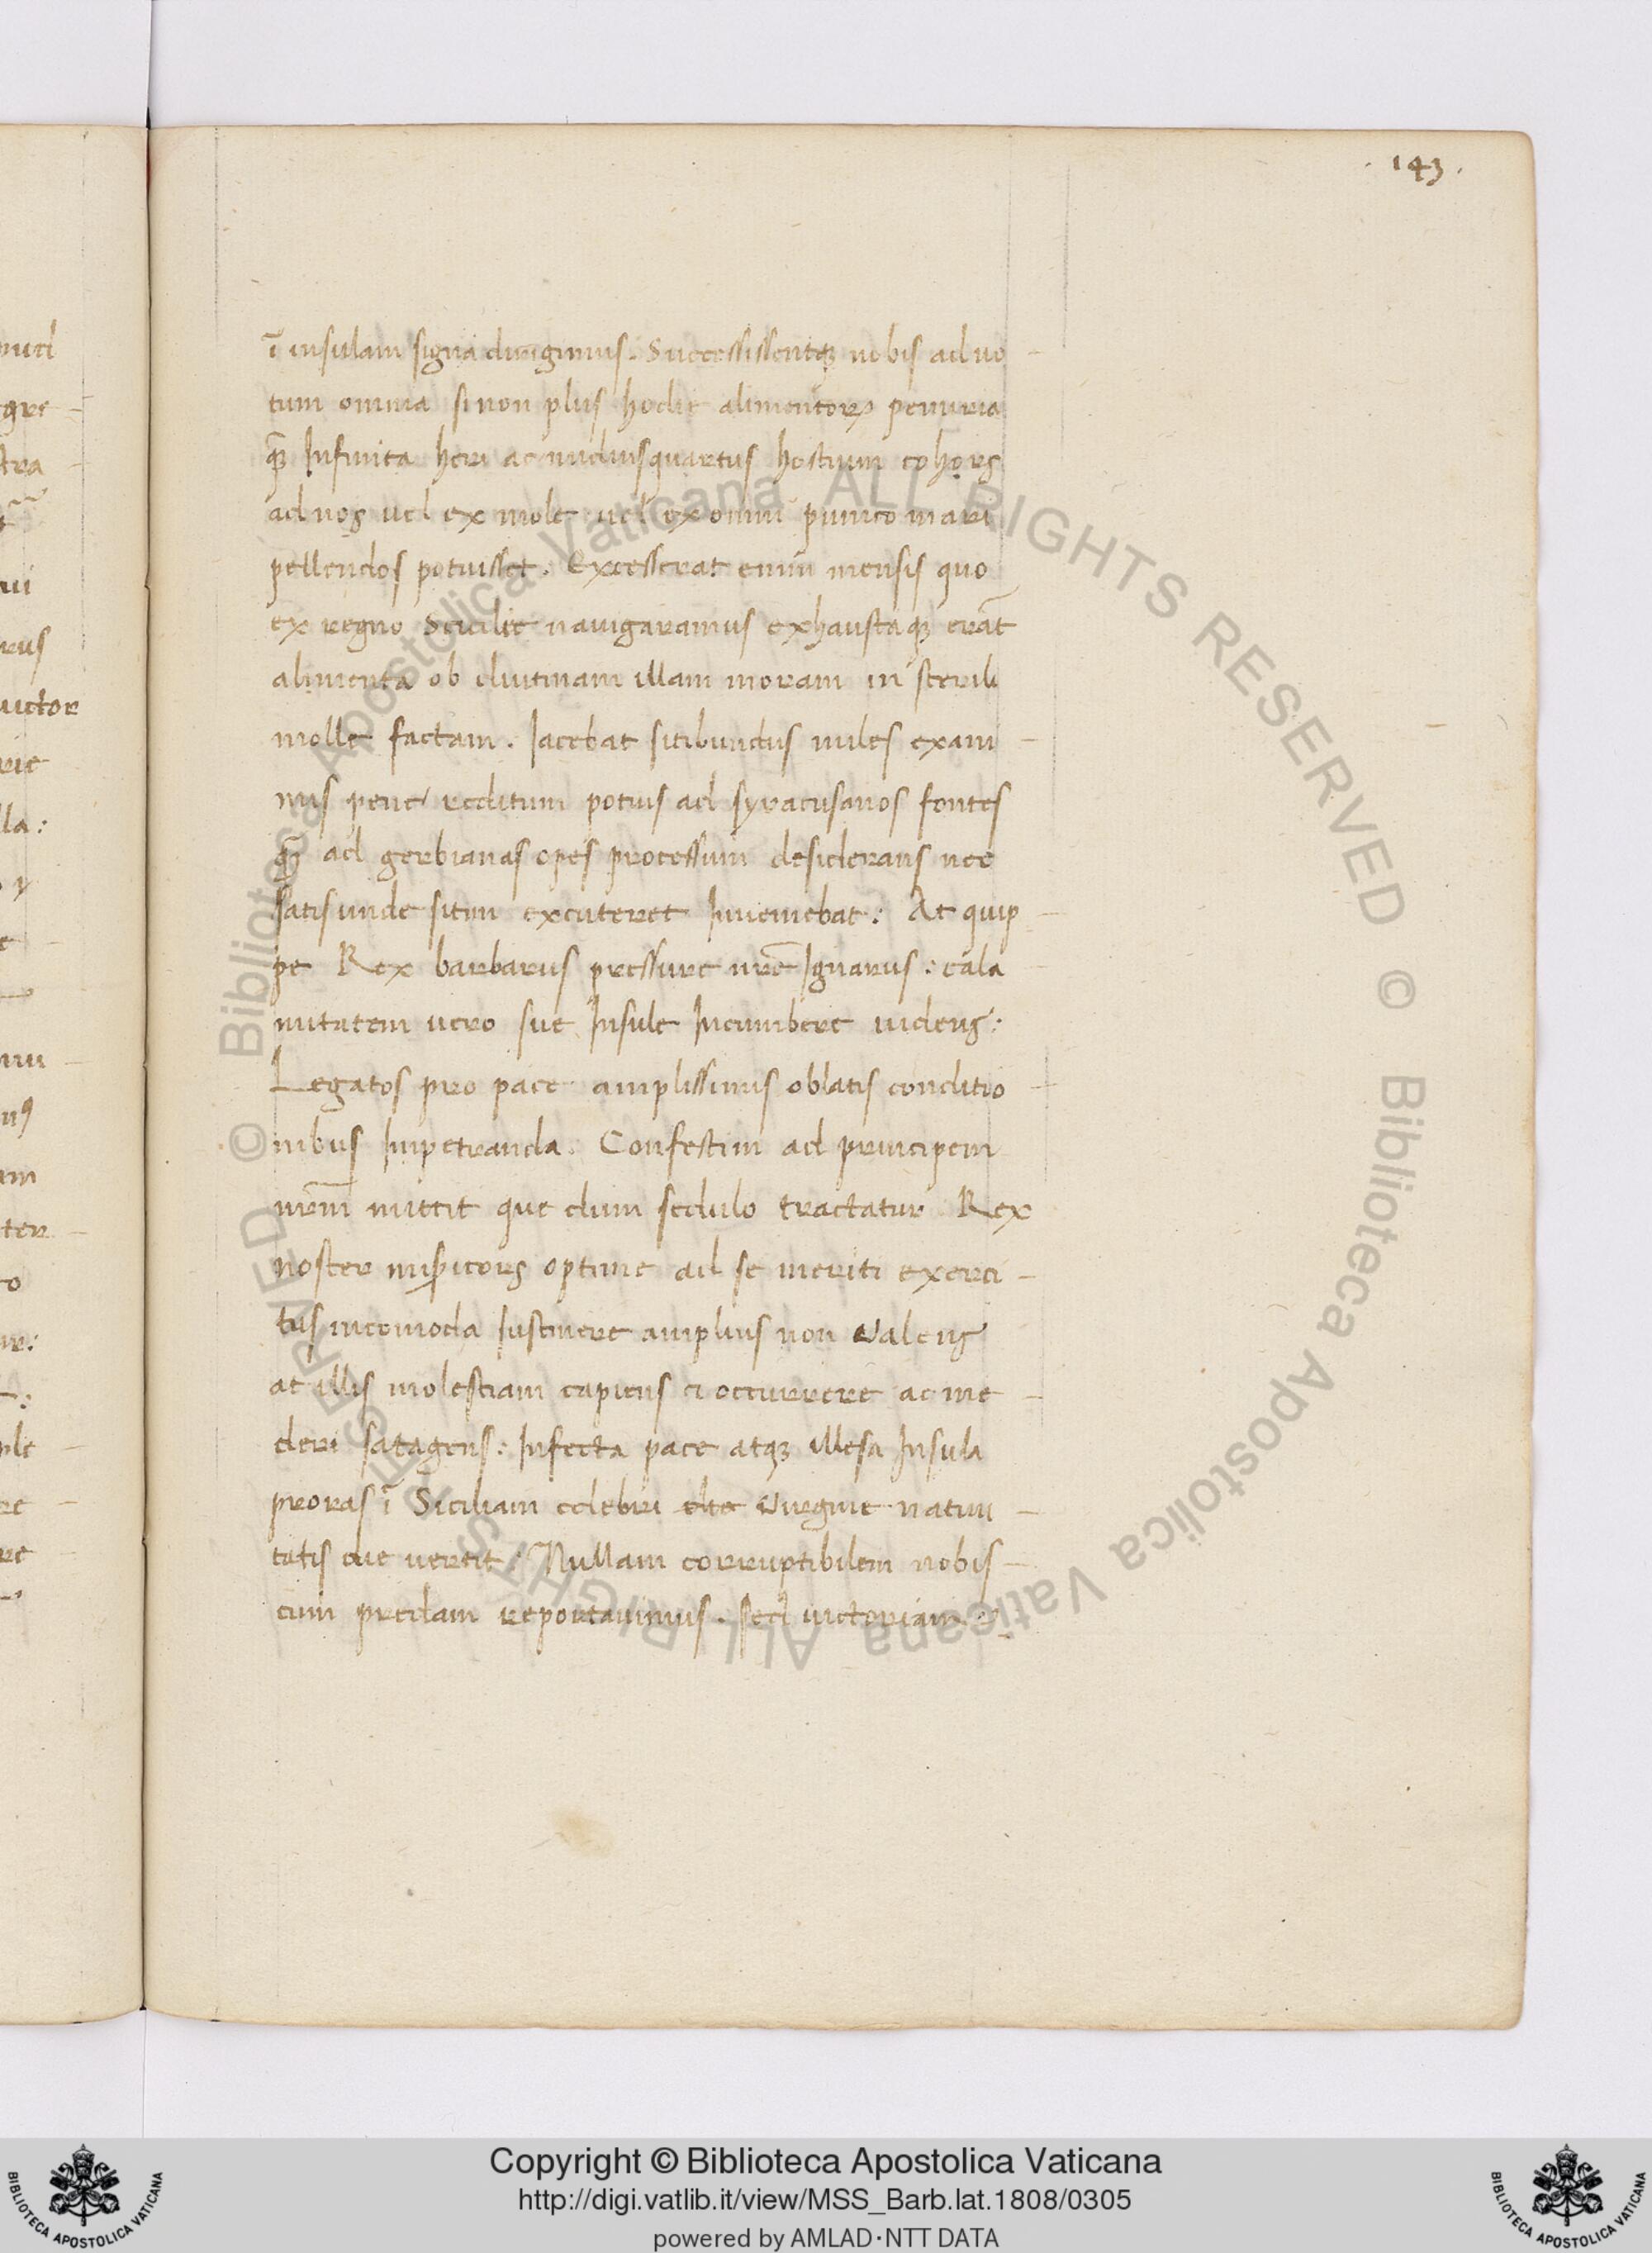 143.
ī insulam signa dirigimus. Successissentqꝫ nobis ad uo
tum omnia si non plus hodie alimentoꝝ penuria
qꝫ̄ Infinita heri ac nudiusquartus hostium cohors
ad nos uel ex mole uel ex omni punico mari
pellendos potuisset. Excesserat enim mensis quo
ex regno Scicilie nauigaramus exhaustaqꝫ erāt
alimenta ob diutinam illam moram in sterili
molle factam. Iacebat sitibundus miles exani
mis pene reditum potius ad syracusanos fontes
qꝫ̄ ad gerbianas opes processum desiderans nec
satis unde sitim excuteret Inueniebat: At quip
pe Rex barbarus pressure nrē Ignarus: cala
mitatem uero sue Insule Incumbere uidens:
Legatos pro pace amplissimis oblatis conditio
nibus Impetranda. Confestim ad principem
nrm̄ mittit que dum sedulo tractatur Rex
noster misericors optime ad se meriti exerci
tus incomoda sustinere amplius non Valens
at illis molestiam capiens ei occurrere ac me
deri satagens: Infecta pace atqꝫ illesa Insula
proras ī Siciliam celebri Virgine natiui
tatis die vertit: Nullam corruptibilem nobis
cum predam reportauimus. sed uictoriam
Copyright © Biblioteca Apostolica Vaticana
http://digi.vatlib.it/view/MSS_Barb.lat.1808/0305
powered by AMLAD·NTT DATA